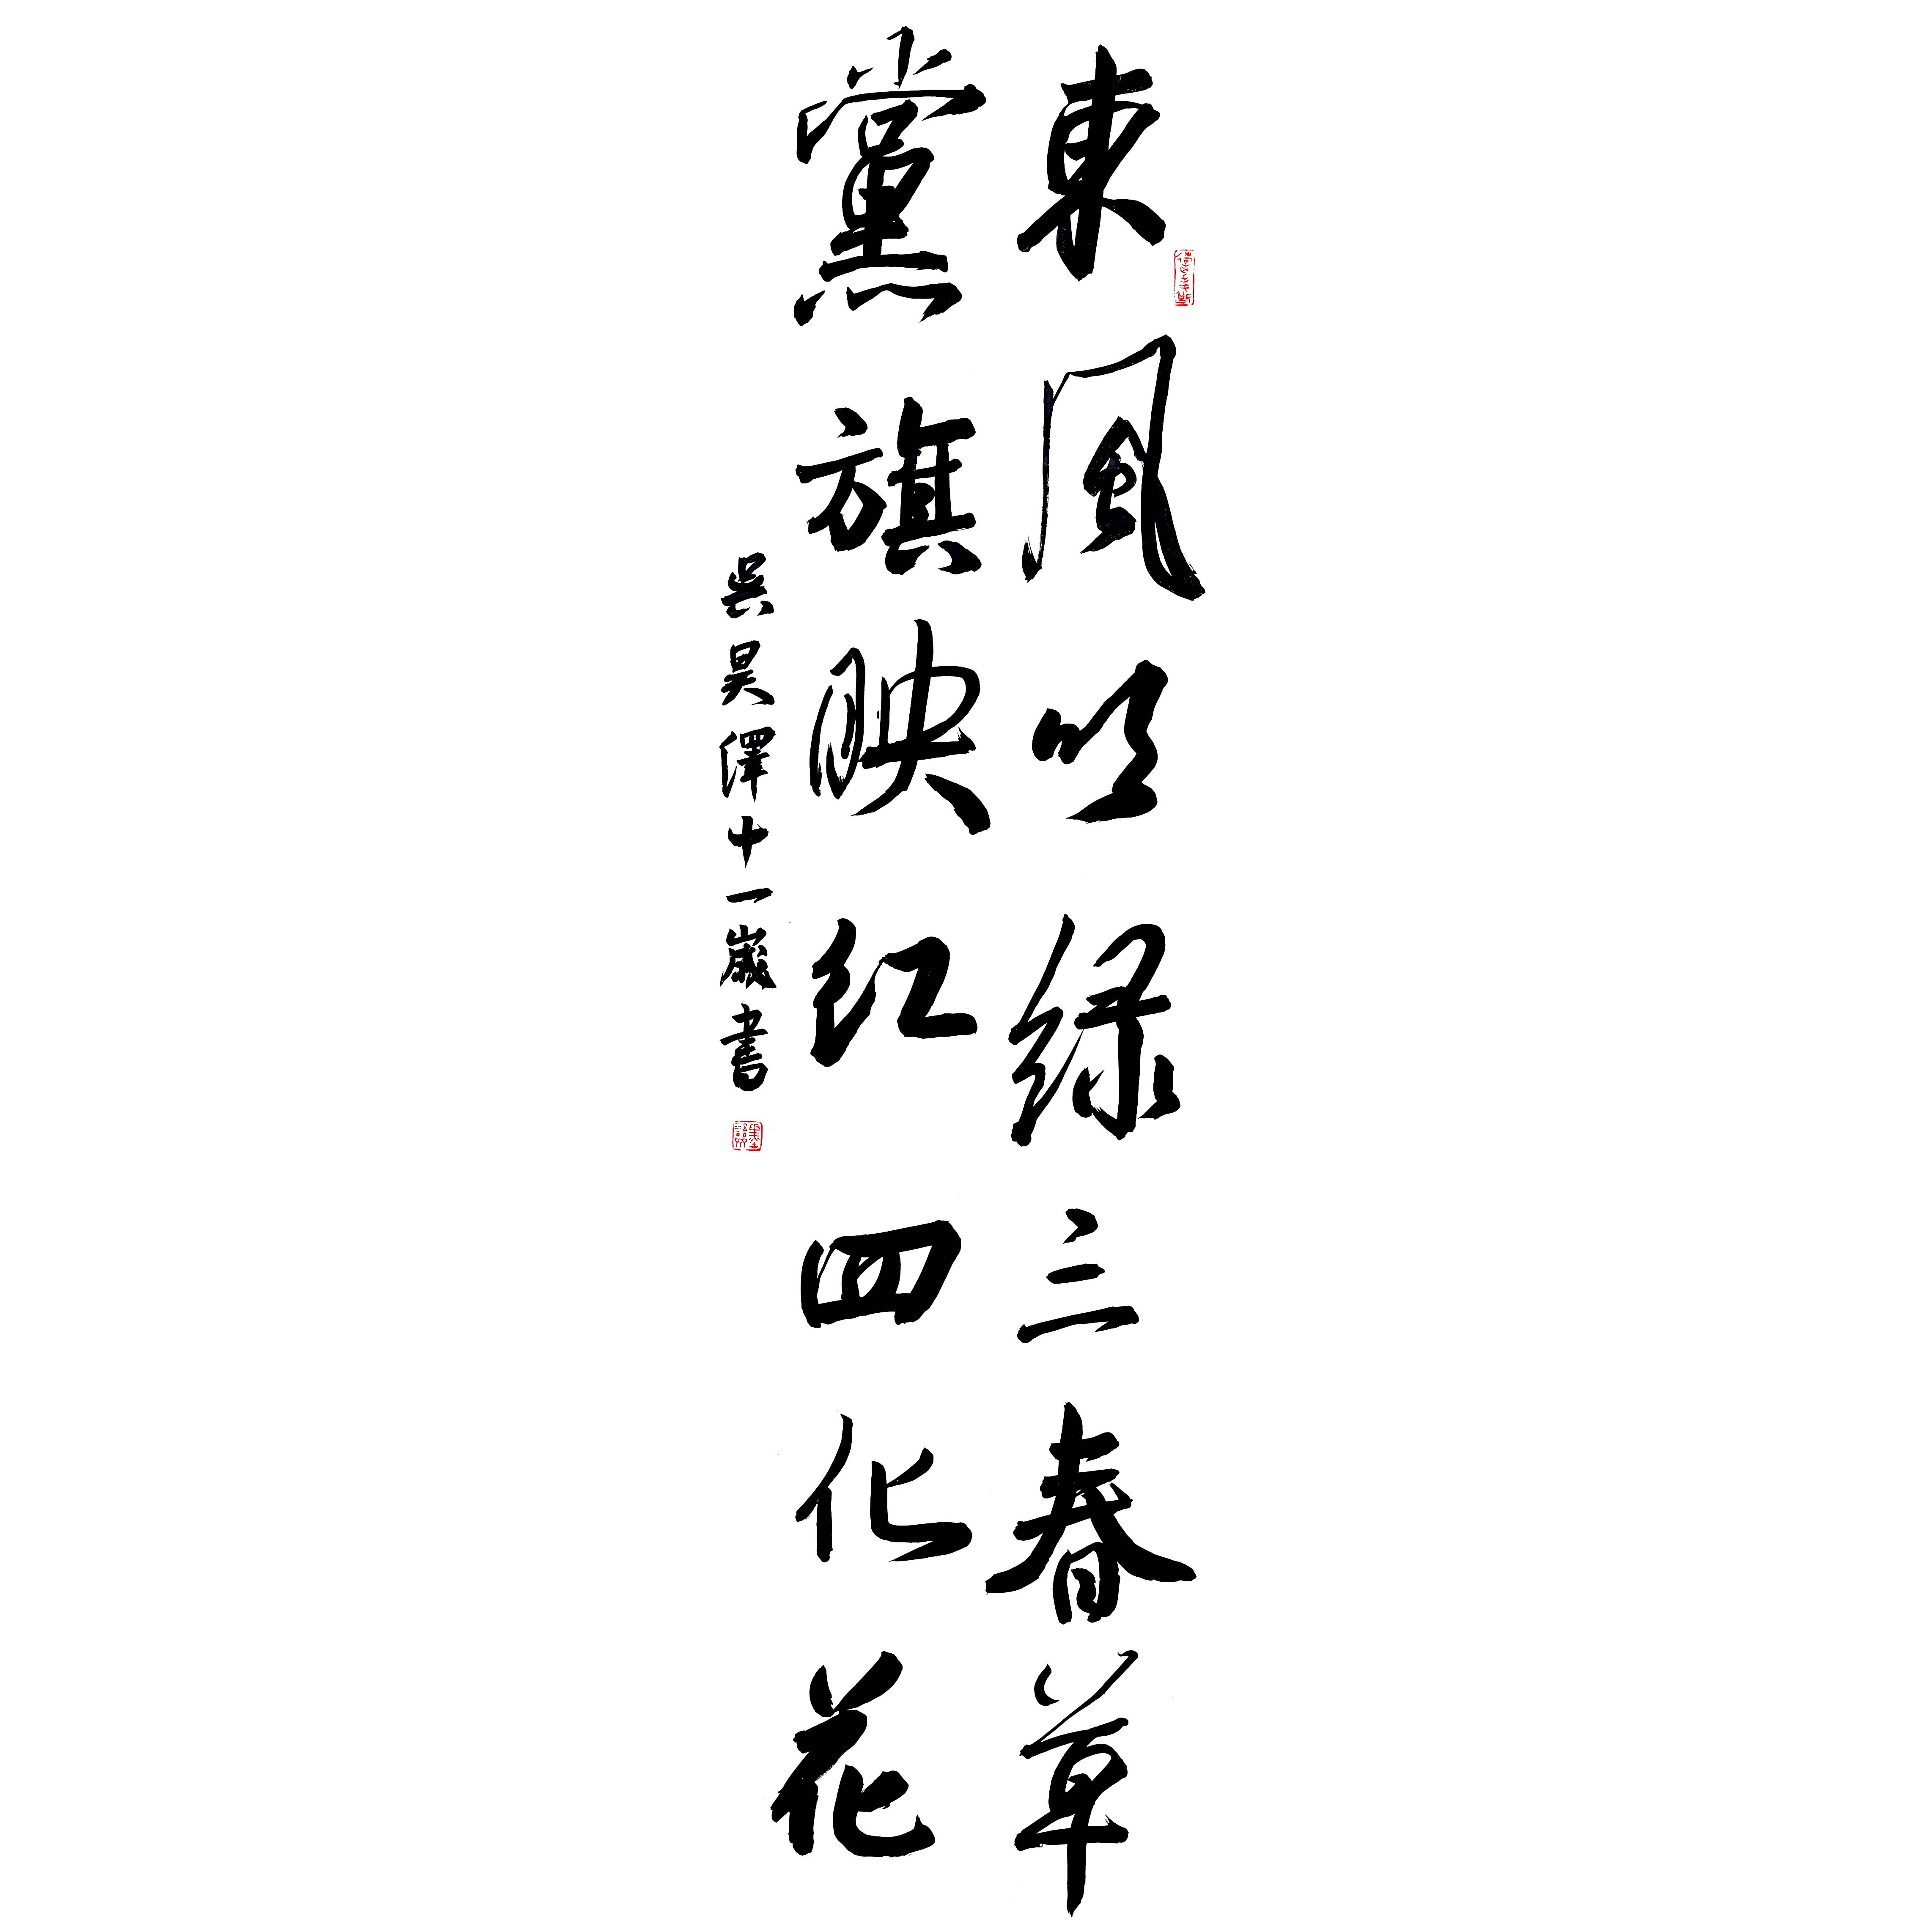 東風吹綠三春草
黨旗映紅四化花
吴昊澤十一歲書